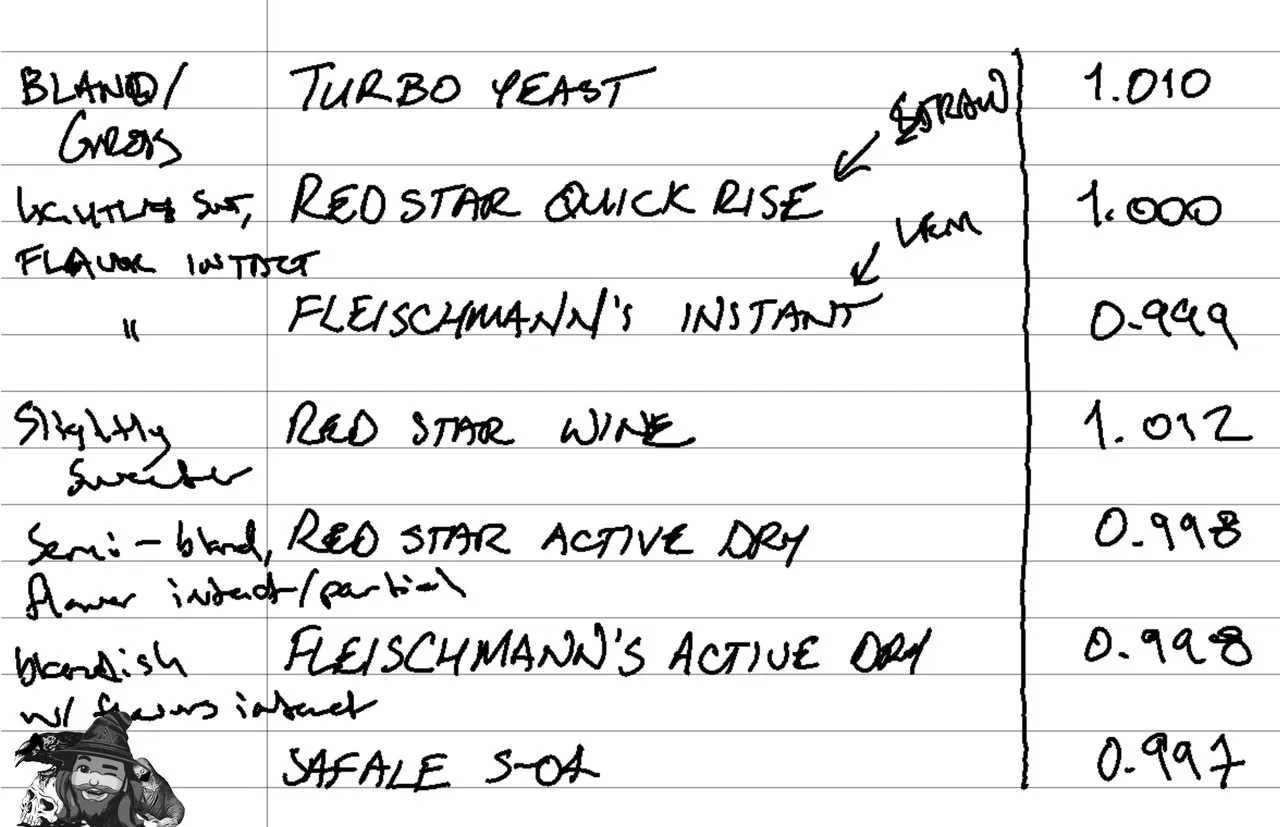 BLAND/ TURBO YEAST 1.010
GROSS STRAW
LIGHTLY SWT, RED STAR QUICK RISE 1.000
FLAVOR INTACT LEM
" FLEISCHMANN'S INSTANT 0.999
Slightly RED STAR WINE 1.012
Sweeter
Semi-bland, RED STAR ACTIVE DRY 0.998
flavor intact/partial
blandish FLEISCHMANN'S ACTIVE DRY 0.998
w/ flavors intact
SAFALE S-04 0.997